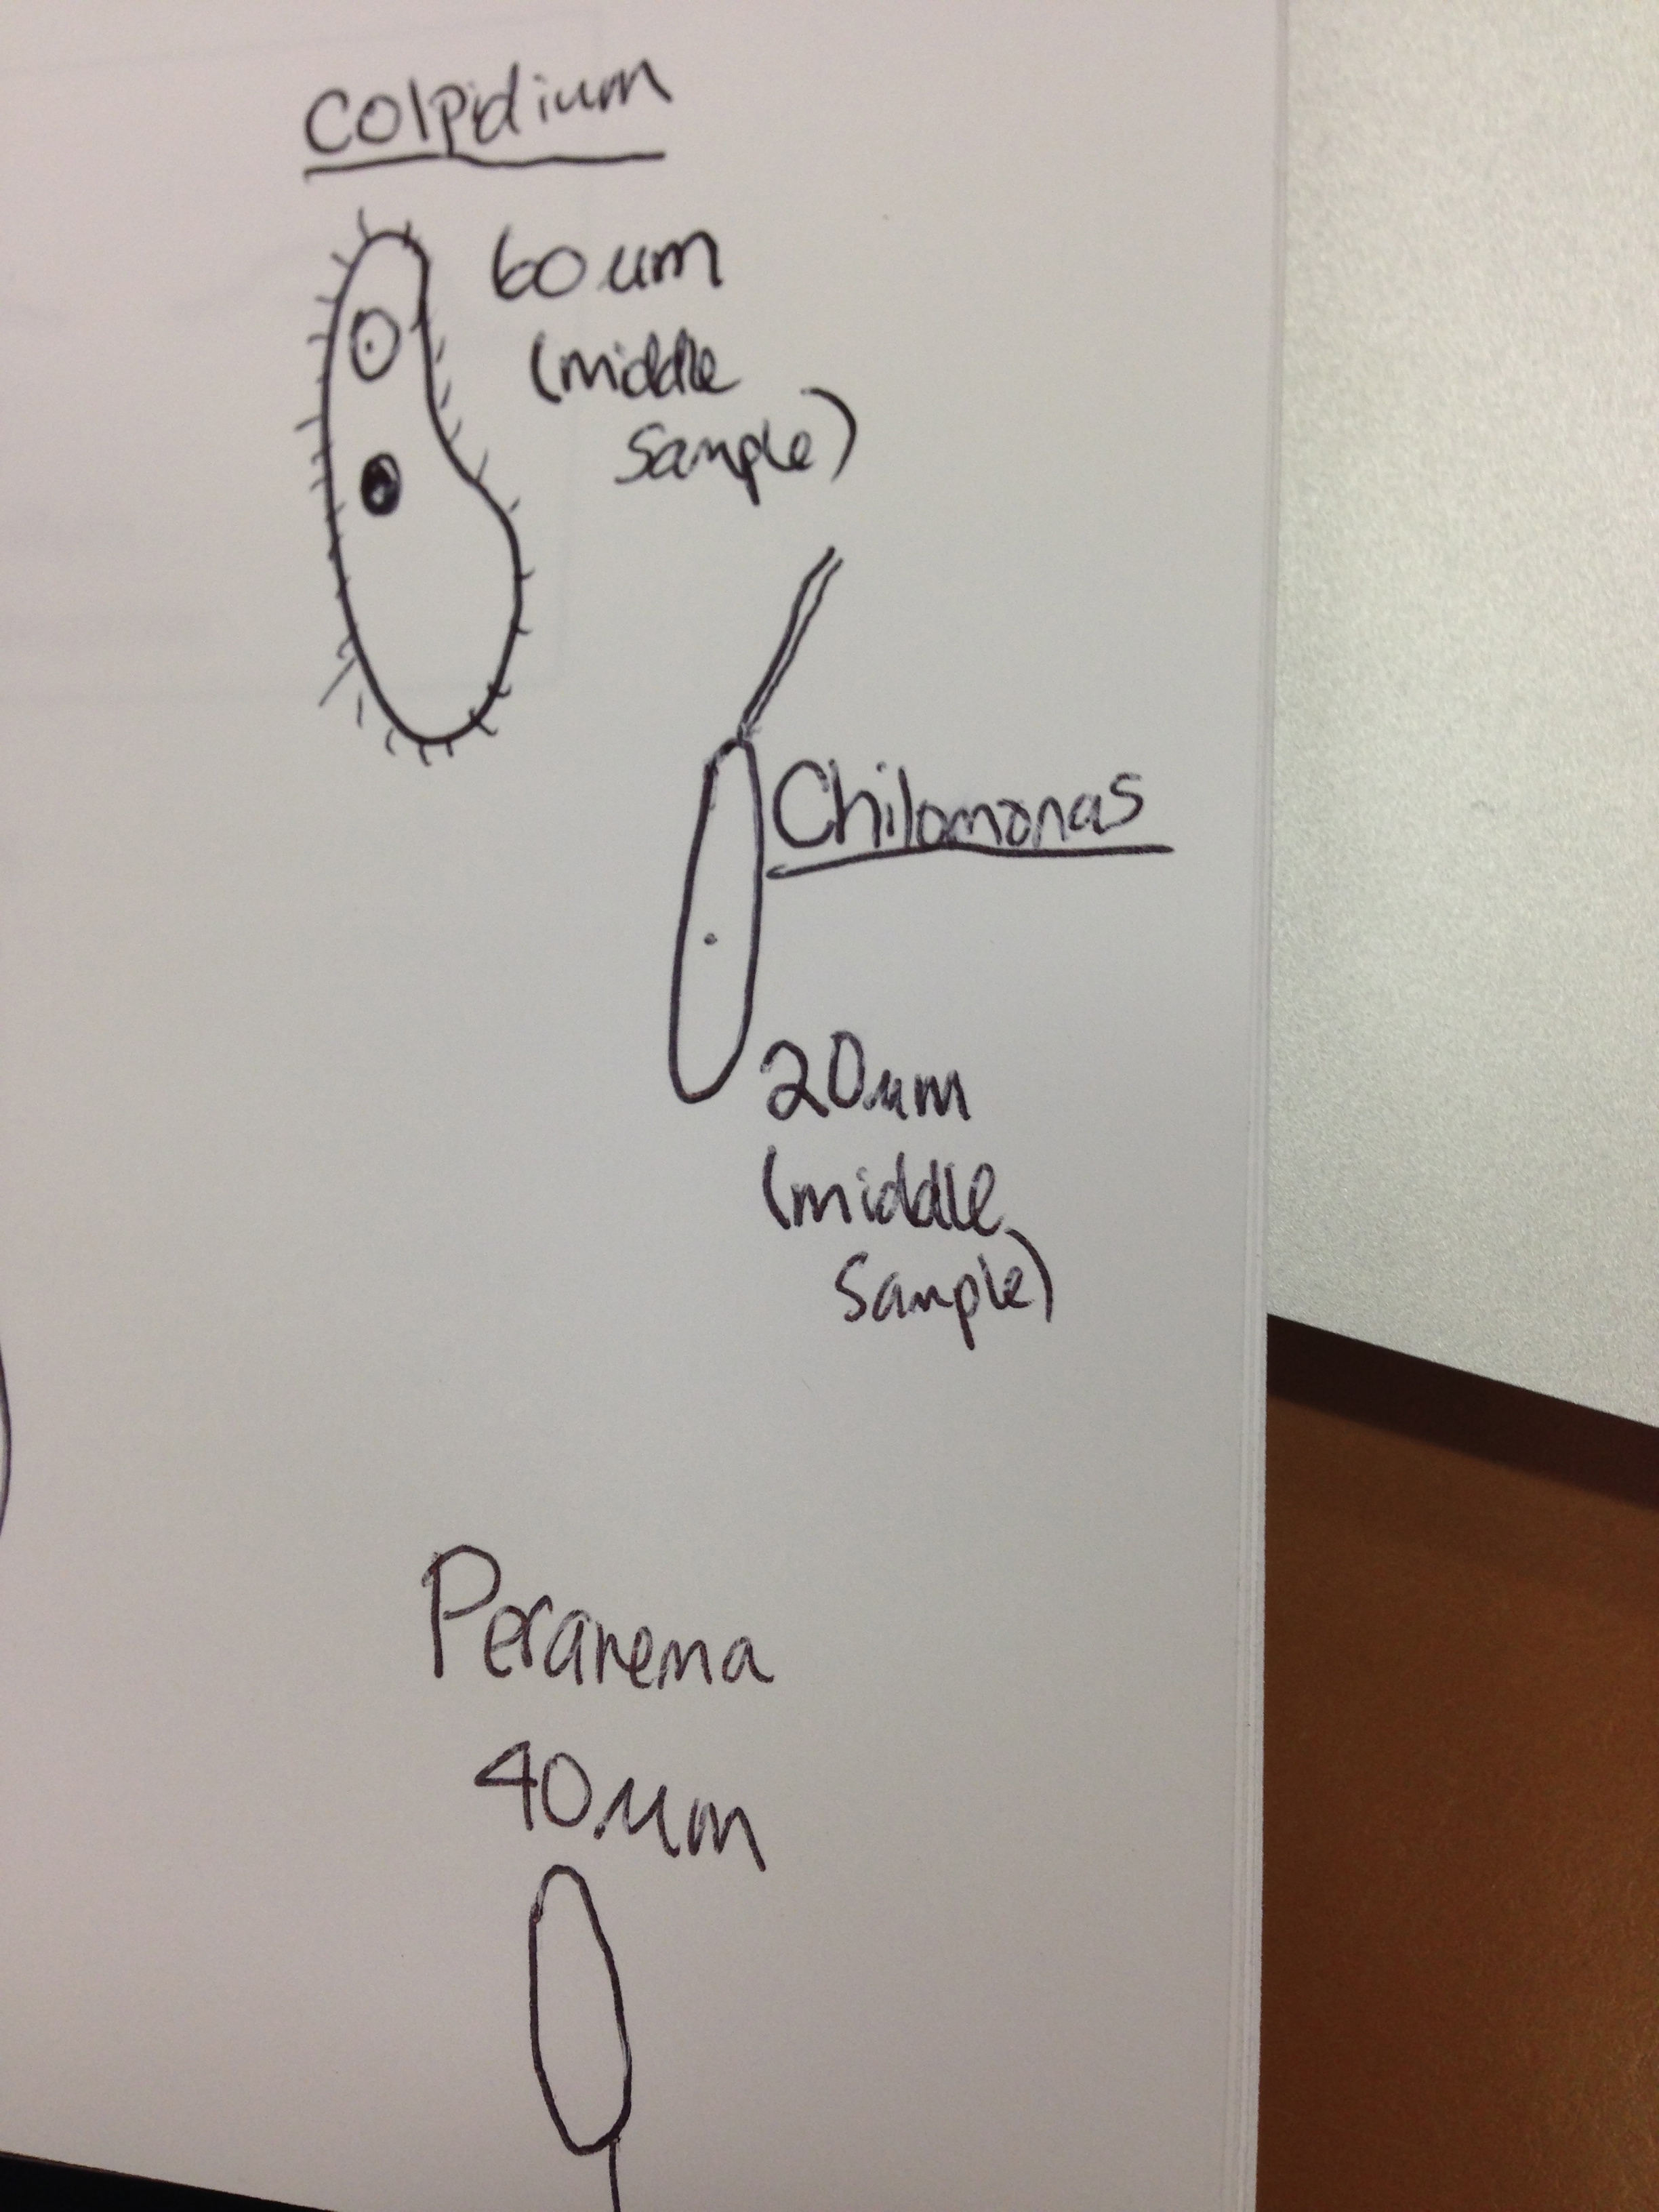 Colpidium
60 um
(middle
sample)
Chilomonas
20 um
(middle
sample)
Peranema
40 um